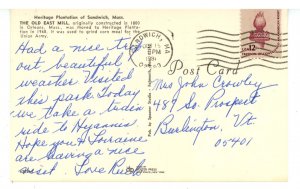 Heritage Plantation of Sandwich, Mass.
THE OLD EAST MILL, originally constructed in 1800
in Orleans, Mass., was moved to Heritage Planta-
tion in 1968. It was used to grind corn meal for the
Union Army.
Had a nice trip
out beautiful
weather Visited
this park Today
we take a train
ride to Hyannis
Hope you & Lorraine
are having a nice
visit Love Ruth
Post Card
Mrs John Crowley
489 So. Prospect
Burlington, Vt
05401